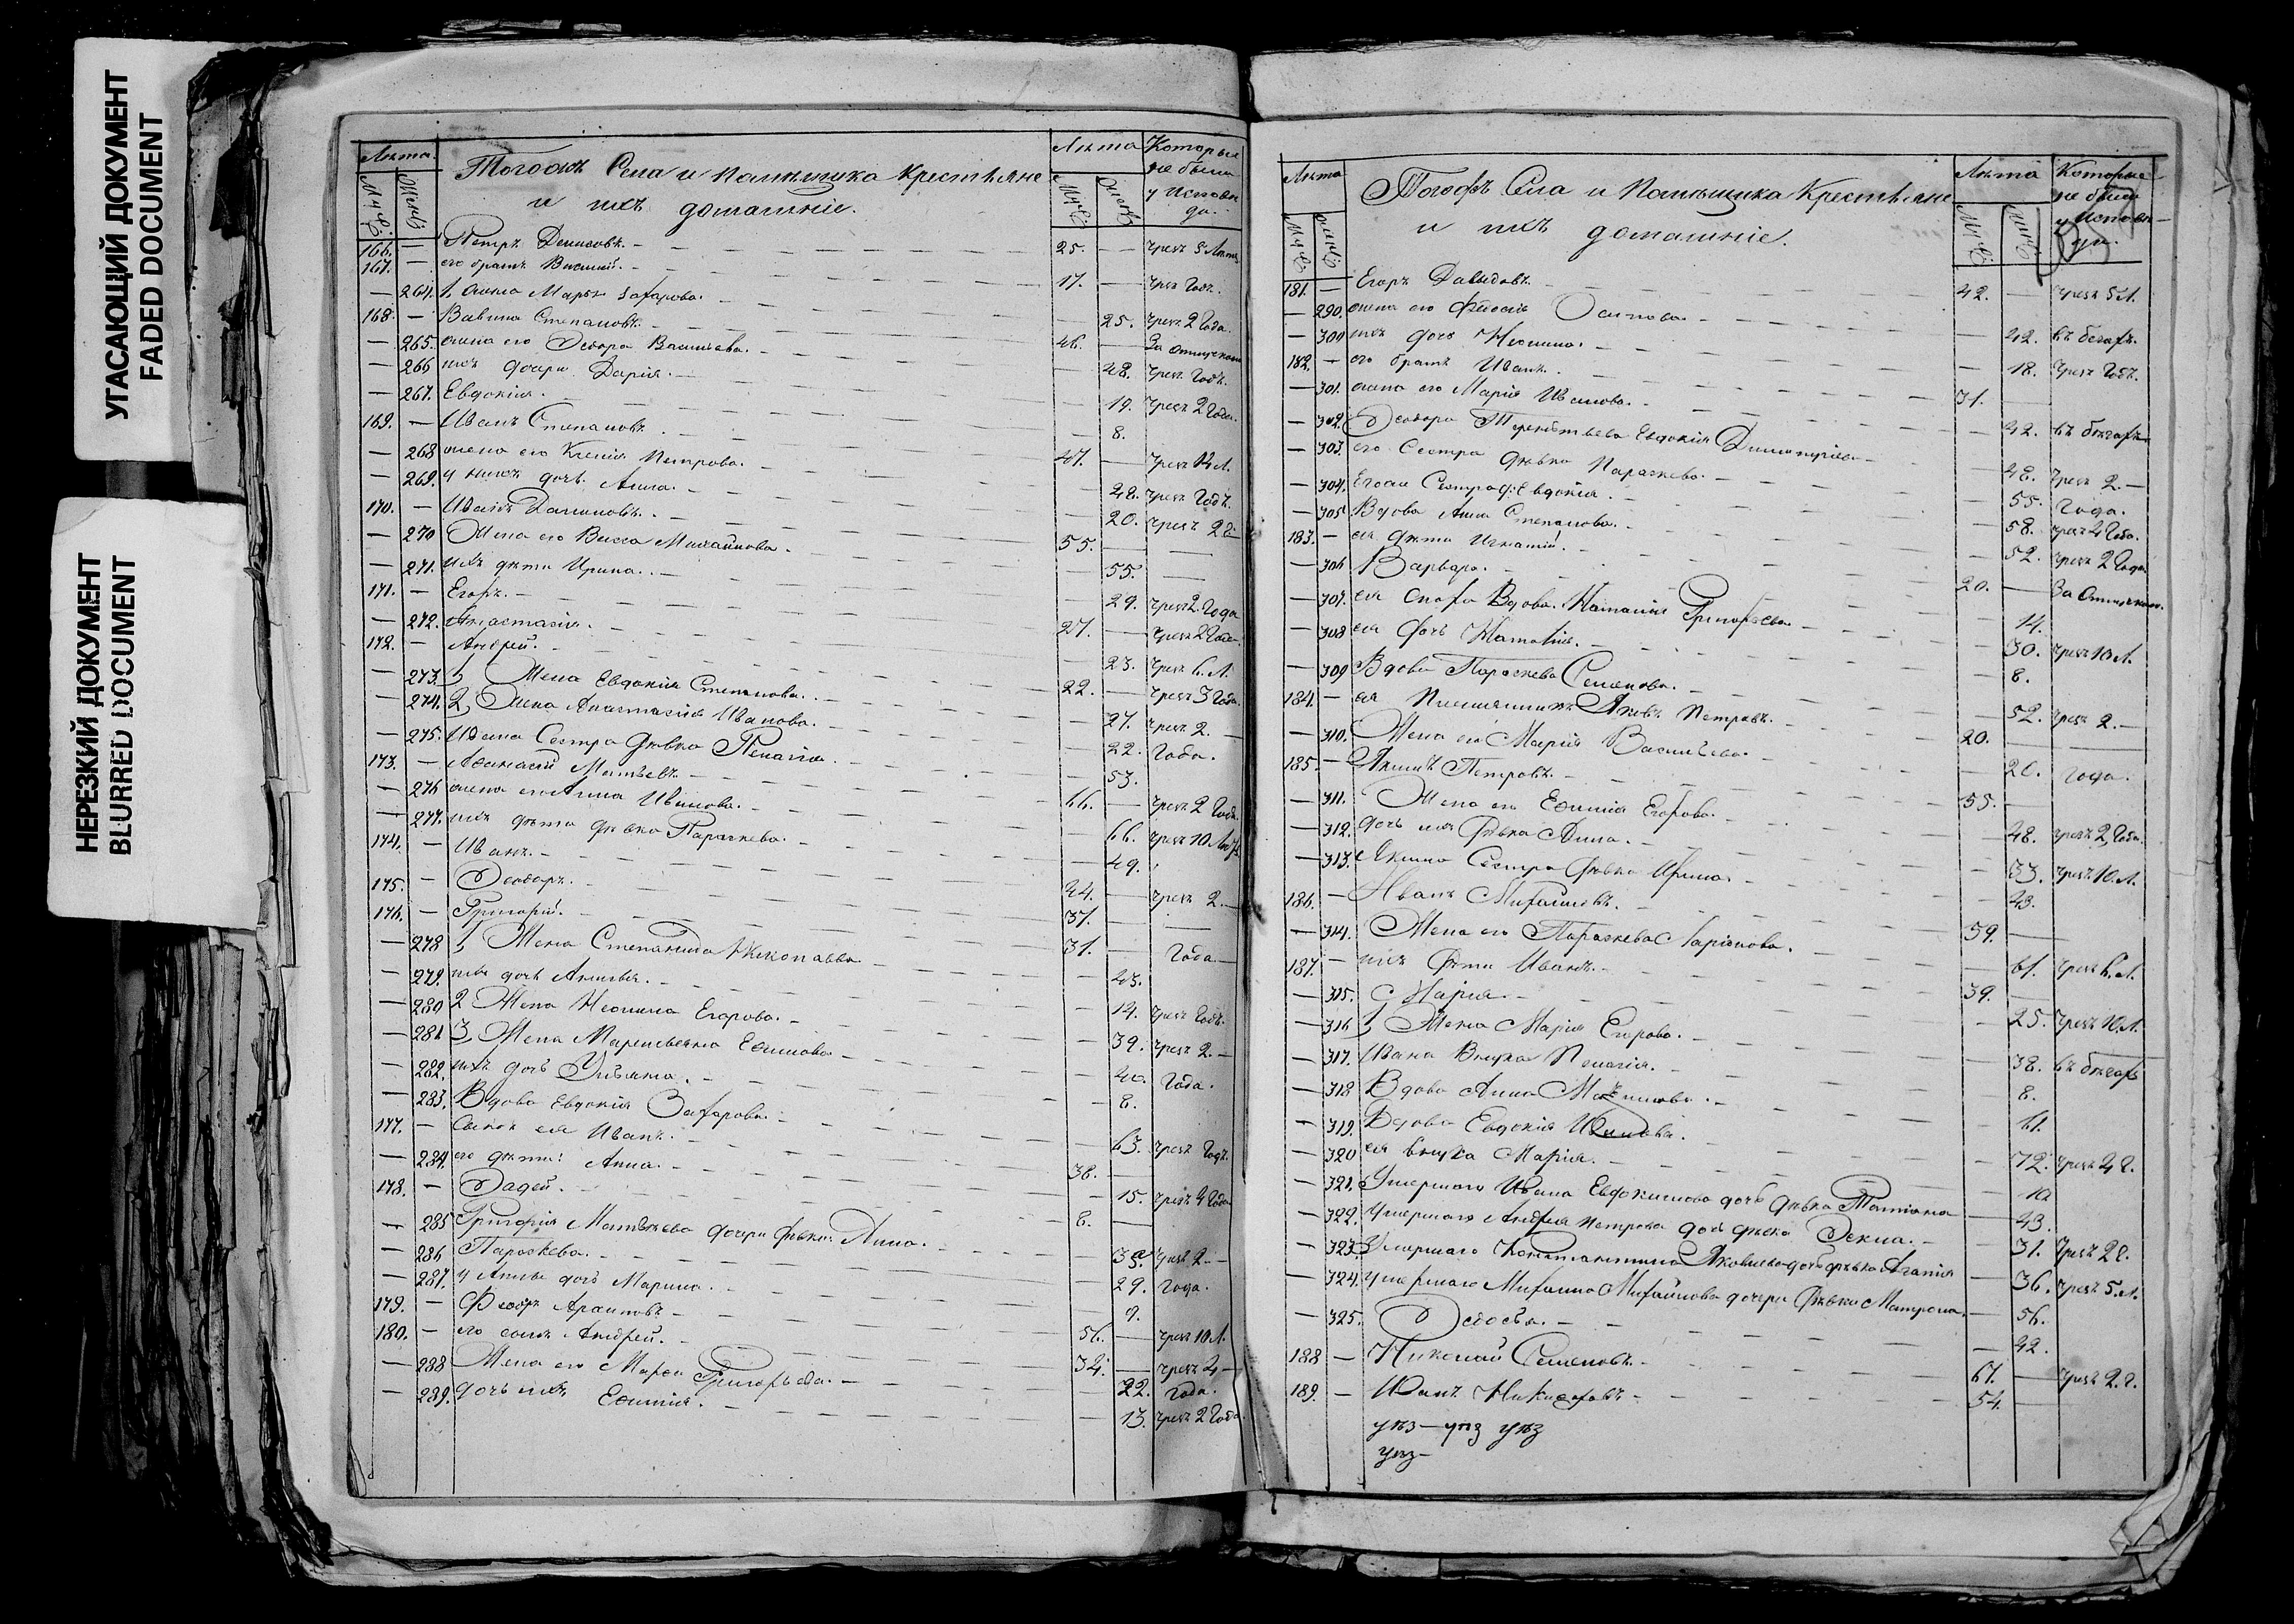 УГАСАЮЩИЙ ДОКУМЕНТ
FADED DOCUMENT
НЕРЕЗКИЙ ДОКУМЕНТ
BLURRED DOCUMENT
Лѣта Тогожъ Села и помѣщика крестьяне и ихъ домашніе. Лѣта Которые не были у Исповѣди.
166. — Петръ Денисовъ. 25. — чрезъ 5 Лѣтъ
167. — его братъ Василій. 17. — чрезъ Годъ.
— 264. 1, жена Марѳа Захарова. — 25. чрезъ 2 Года.
168. — Вавила Степановъ. 46. — За отлучкою
— 265. жена его Ѳедора Васильева. — 48. чрезъ Годъ.
— 266 ихъ дочери Дарія. — 19. чрезъ 2 Года.
— 267. Евдокія. — 8.
169. — Иванъ Степановъ. 47. — чрезъ 14 Л.
— 268 жена его Ксенія Петрова. — 48. чрезъ Годъ.
— 269. у нихъ дочь Анна. — 20. чрезъ 2 г.
170. — Иванъ 55. —
— 270 Жена его Васса Михайлова. — 55. —
— 271. ихъ дѣти Ирина. — 29. чрезъ 2. Года
171. — Егоръ. 27. — чрезъ 2 Года
— 272. Анастасія. — 23. чрезъ 6. Л.
172. — Андрей. 22. — чрезъ 3 Года.
— 273. 1, Жена Евдокія Степанова. — 27. чрезъ 2. —
— 274. 2, Жена Анастасія Иванова. — 22. Года.
— 275. Ивана Сестра дѣвка Пелагія. — 53.
173. — Аѳанасій Матвѣевъ. 66. — чрезъ 2 Года.
— 276 жена его Анна Иванова. — 66. чрезъ 10 Лѣтъ
— 277. ихъ дѣти дѣвка Параскева. — 49.
174. — Иванъ. 44. — чрезъ 2. —
175. — Ѳеодоръ. 37. —
176. — Григорій. 31. — Года —
— 278 1, Жена Степанида — 43.
— 279. ихъ дочь — 14. чрезъ Годъ.
— 280 2 Жена Неонила Егорова. — 39. чрезъ 2. —
— 281 3, Жена Маремьяна Ефимова — 40. Года.
— 282. ихъ дочь Ульяна. — 8.
— 283. Вдова Евдокія Захарова. — 63. чрезъ Годъ.
177. — Сынъ ея Иванъ. 38. —
— 284. его дѣти: Анна. — 15. чрезъ 4 Года
178. — Ѳадей. 8. —
— 285 Григорія Матвѣева дочери дѣвки: Анна. — 39. чрезъ 2. —
— 286 Параскева. — 29. Года.
— 287. у Анны дочь Марина. — 9.
179. — Ѳеодоръ 56. — чрезъ 10 Л.
180. — его сынъ Андрей. 34. — чрезъ 4 —
— 288 Жена его Марѳа Григорьева. — 22. Года.
— 289. дочь ихъ Евфимія. — 13. чрезъ 2 Года.
Лѣта Тогожъ Села и Помѣщика Крестьяне и ихъ домашніе. Лѣта Которые не были у Исповѣди.
181. — Егоръ Давыдовъ. 42. — чрезъ 5 Л.
— 290. жена его Ѳедосія Осипова — 42. въ бѣгахъ.
— 300 ихъ дочь Неонила. — 18. Чрезъ Годъ.
182. — его братъ Иванъ. 31. —
— 301. жена его Марія Иванова. — 42. въ бѣгахъ
— 302. Ѳеодора Терентьева Евдокія Димитріева — 48. Чрезъ 2. —
— 303. его Сестра дѣвка Параскева. — 55. Года.
— 304. Егоже Сестра д: Евдокія. — 58. чрезъ 4 Года.
— 305 Вдова Анна Степанова. — 52. чрезъ 2 Года
183. — ея дѣти Игнатій. 20. — За отлучкою.
— 306 Варвара. — 14.
— 307. ея сноха Вдова Наталія Григорьева. — 30. чрезъ 10 Л.
— 308 ея дочь Наталія. — 8.
— 309 Вдова Параскева Семенова. — 52. чрезъ 2. —
184. — ея Племянникъ Яковъ Петровъ. 20. —
— 310. Жена его Марія Васильева. — 20. года.
185. — Якимъ Петровъ. 55. —
— 311. Жена его Евфимія Егорова. — 48. чрезъ 2, Года.
— 312. дочь ихъ дѣвка Анна. — 33. чрезъ 10. Л.
— 313. Якима Сестра дѣвка Ирина. — 43.
186. — Иванъ Михайловъ. 59. —
— 314. Жена его Параскева Ларіонова. — 61. чрезъ 6. Л.
187. — ихъ дѣти Иванъ. 39. —
— 315. Марія. — 25. Чрезъ 10. Л.
— 316 1, Жена Марія Егорова. — 38. въ бѣгахъ
— 317. Ивана Внучка Пелагія. — 8.
— 318 Вдова Анна — 61.
— 319. Вдова Евдокія Иванова. — 72. чрезъ 4 г.
— 320 ея внучка Марія. — 10
— 321. Умершаго Ивана Евдокимова дочь дѣвка Татіана — 43.
— 322. Умершаго Андрея Петрова дочь дѣвка Ѳекла. — 31. Чрезъ 2 г.
— 323. Умершаго Константина Яковлева дочь дѣвка Агапія — 36. чрезъ 5. Л.
— 324. умершаго Михаила Михайлова дочери дѣвки Матрона. — 56.
— 325. Ѳедосья. — 42.
188 — Николай Семеновъ. 67. — Чрезъ 2. г.
189. — Иванъ Никифоровъ 54. —